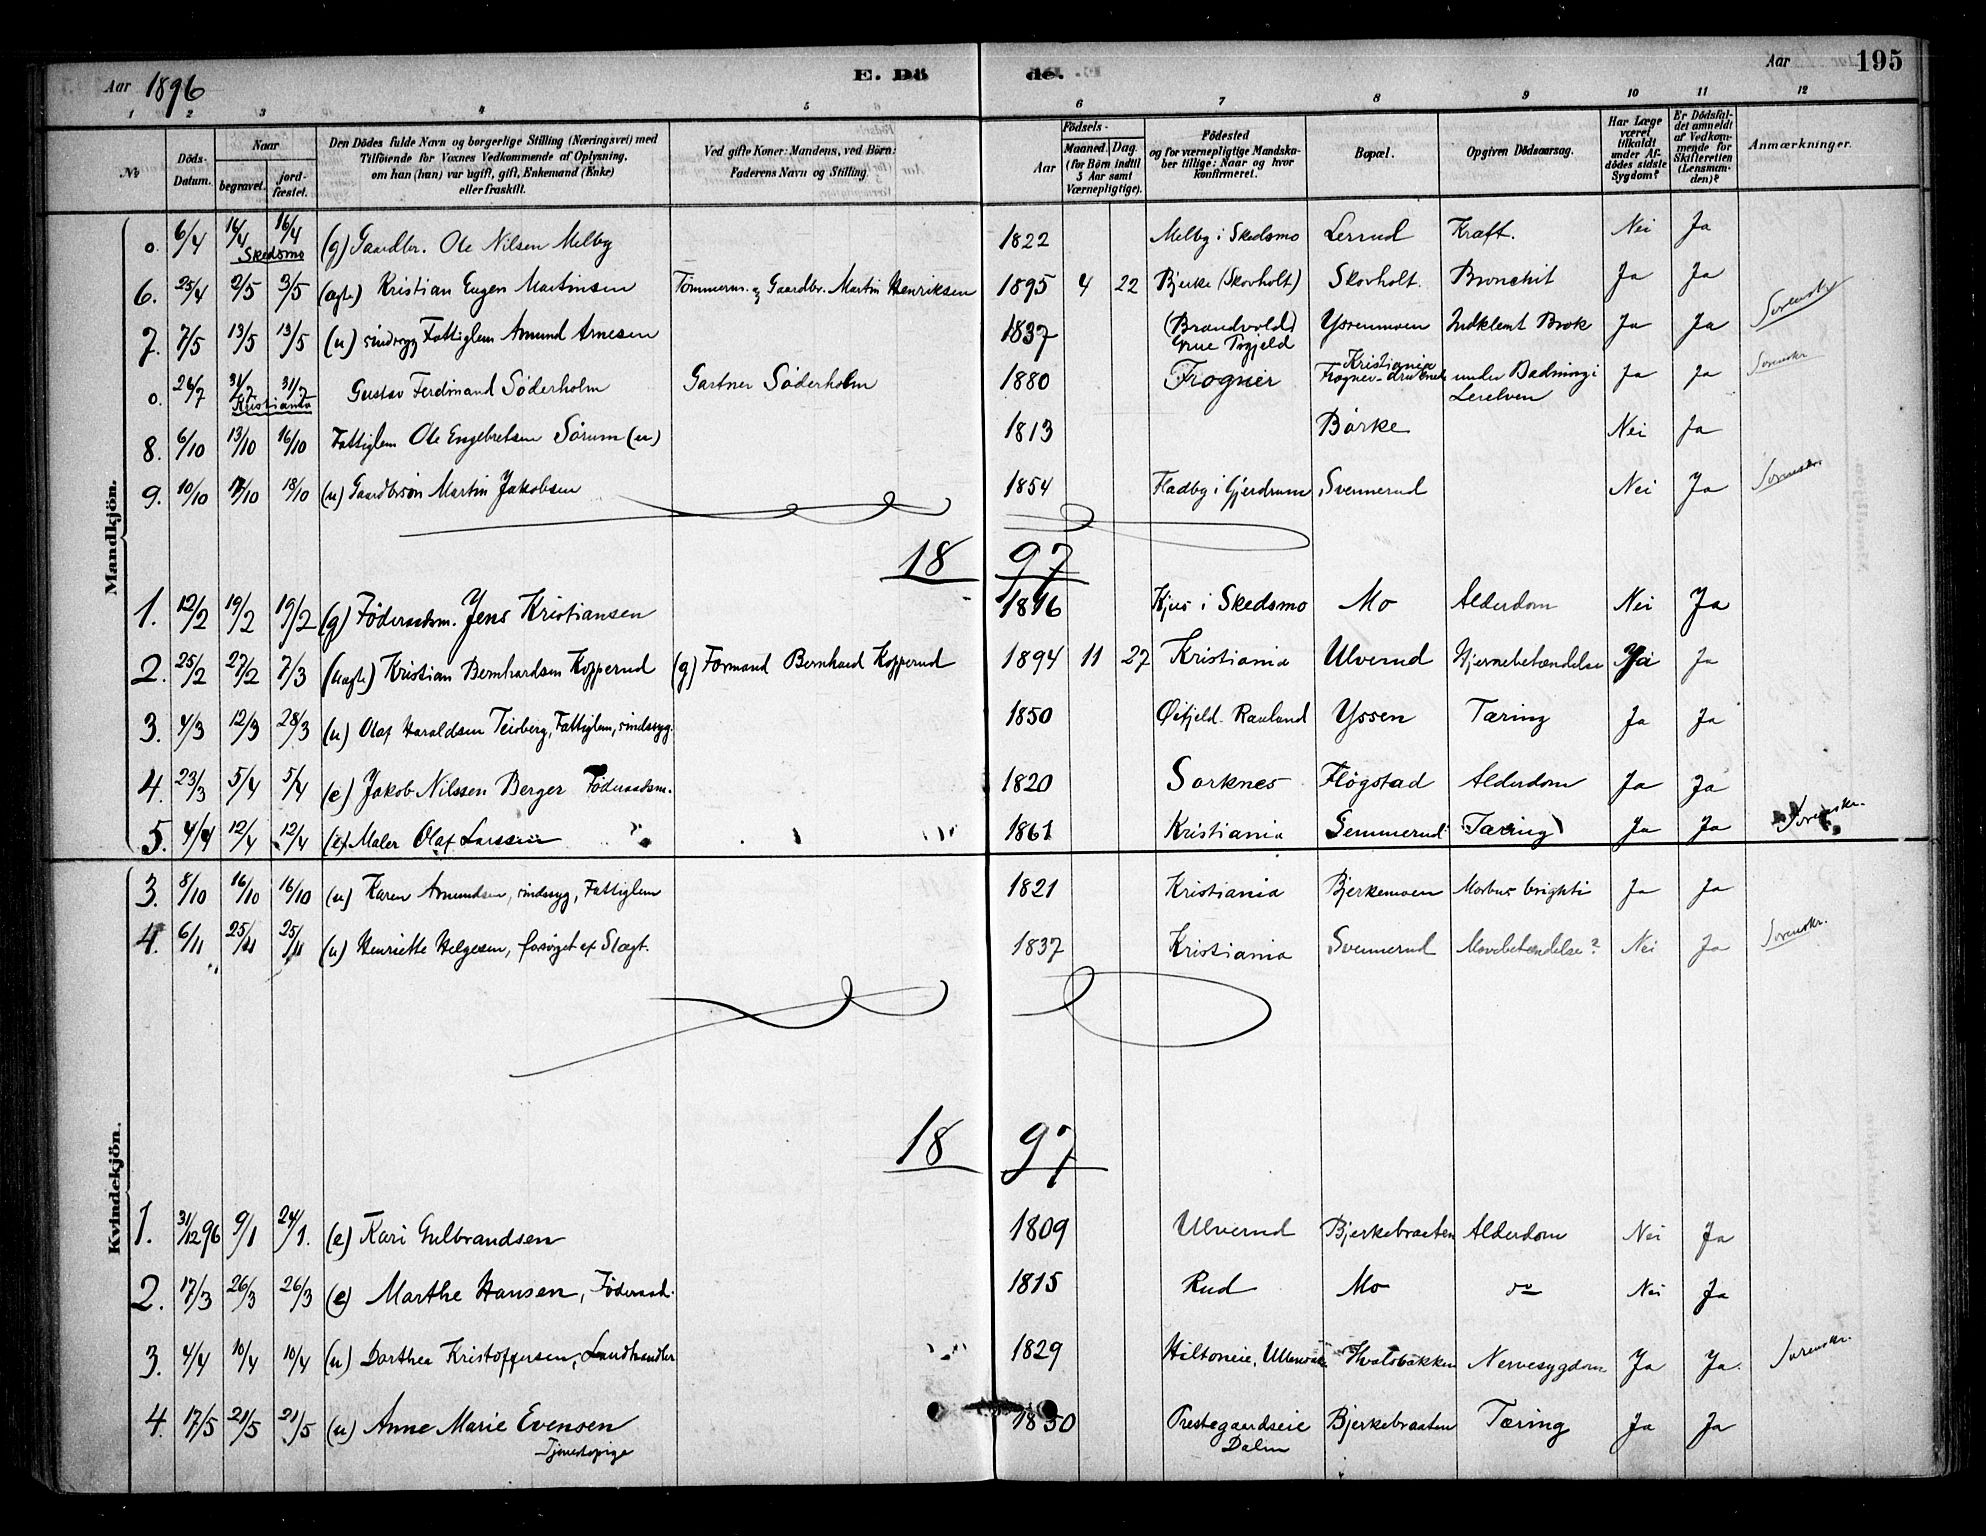 Aar 1896 E. Dö de. Aar 195
1 2 3 4 5 6 7 8 9 10 11 12
No
Döds-Datum.
Naar
begravet.
jordfæstet.
Den Dödes fulde Navn og borgerlige Stilling (Næringsvei) med
Tilföiende for Voxnes Vedkommende af Oplysning,
om han (hun) var ugift, gift, Enkemand (Enke)
eller fraskilt.
Ved gifte Koner: Mandens, ved Börn:
Faderens Navn og Stilling
Födsels-
Aar
Maaned. Dag.
(for Börn indtil
5 Aar samt
Værnepligtige).
Födested
og for værnepligtige Mandskaber
tillige: Naar og hvor
konfirmeret.
Bopæl.
Opgiven Dödsaarsag.
Har Læge
været
tilkaldt
under Afdödes
sidste
Sygdom?
Er Dödsfaldet
anmeldt
af Vedkommende
for
Skifteretten
(Lensmanden)?
Anmærkninger.
Mandkjön.
o. 6/4 16/4 16/4 Skedsmo (g) Gaardbr. Ole Nilsen Melby 1822 Melby i Skedsmo Lerrud Kræft. Nei Ja
6. 25/4 2/5 3/5 (ægte) Kristian Eugen Martinsen Tömmerm. og Gaardbr. Martin Henriksen 1895 4 22 Bjerke (Skovholt) Skovholt. Bronchit Ja Ja
7. 7/5 13/5 13/5 (u) sindssyg Fattiglem Amund Arnesen 1837 (Brandvold) Grue Prgjeld Yssenmoen Indklemt Brok Ja Ja Sorenskr.
o. 26/7 31/7 31/7 Kristiania Gustav Ferdinand Söderholm Gartner Söderholm 1880 Frogner Kristiania Frogner - druknede under Badning i Lerelven Ja Ja Sorenskr
8. 6/10 13/10 16/10 Fattiglem Ole Engebretsen Sörum (u) 1813 Börke Nei Ja
9. 10/10 17/10 18/10 (u) Gaardbrsön Martin Jakobsen 1854 Fladby i Gjerdrum Svennerud Nei Ja Sorenskr.
18 97
1. 12/2 19/2 19/2 (g) Föderaadsm. Jens Kristiansen 1816 Kjus i Skedsmo Mo Alderdom Nei Ja
2. 25/2 27/2 7/3 (uægte) Kristian Bernhardsen Kopperud (g) Formand Bernhard Kopperud 1894 11 27 Kristiania Ulverud Hjernebetændelse Ja Ja
3. 4/3 12/3 28/3 (u) Olaf Haraldsen Teisberg, Fattiglem, sindssyg. 1850 Öifjeld - Rauland Yssen Tæring Ja Ja
4. 23/3 5/4 5/4 (e) Jakob Nilssen Berger Föderaadsm. 1820 Sörknes Flögstad Alderdom Ja Ja
5. 4/4 12/4 12/4 Maler Olaf Larssen 1861 Kristiania Semmerud Tæring Ja Ja Sorenskr.
Kvindekjön.
3. 8/10 16/10 16/10 (u) Karen Amundsen, sindssyg, Fattiglem 1821 Kristiania Bjerkemoen Morbus brighti Ja Ja
4. 6/11 25/11 25/11 (u) Henriette Helgesen, forsörget af Slægt. 1837 Kristiania Svennerud Mavebetændelse? Nei Ja Sorenskr.
18 97
1. 31/12 96 9/1 24/1. (e) Kari Gulbrandsen 1809 Ulverud Bjerkebraaten Alderdom Nei Ja
2. 17/3 26/3 26/3 (e) Marthe Hansen, Föderaad. 1815 Rud Mo do Nei Ja
3. 4/4 10/4 10/4 (u) Dorthea Kristoffersen, Landhandler 1829 Hiltoneie, Ullensak. Hvalsbakken Nervesygdom Ja Ja. Sorenskr.
4. 17/5 21/5 21/5 (u) Anne Marie Evensen Tjenestepige 1850 Prestegaardseie Dalen Bjerkebraaten Tæring Ja Ja